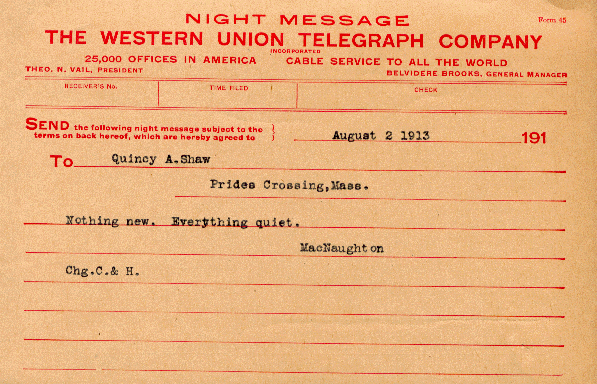 NIGHT MESSAGE
Form 45
THE WESTERN UNION TELEGRAPH COMPANY
INCORPORATED
25,000 OFFICES IN AMERICA CABLE SERVICE TO ALL THE WORLD
THEO. N. VAIL, PRESIDENT BELVIDERE BROOKS, GENERAL MANAGER
RECEIVER'S No. TIME FILED CHECK
SEND the following night message subject to the
terms on back hereof, which are hereby agreed to
August 2 1913 191
To Quincy A.Shaw
Prides Crossing,Mass.
Nothing new. Everything quiet.
MacNaughton
Chg.C.& H.